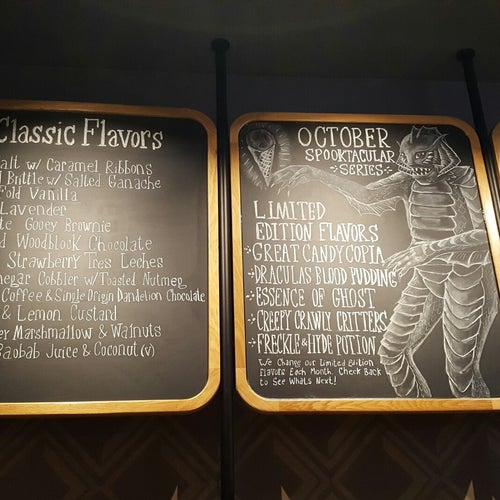 Classic Flavors
alt w/ Caramel Ribbons
Brittle w/ Salted Ganache
Fold Vanilla
Lavender
te Gooey Brownie
d Woodblock Chocolate
Strawberry Tres Leches
negar Cobbler w/ Toasted Nutmeg
Coffee & Single Origin Dandelion Chocolate
& Lemon Custard
er Marshmallow & Walnuts
Baobab Juice & Coconut (v)
OCTOBER
SPOOKTACULAR
SERIES
LIMITED
EDITION FLAVORS
GREAT CANDYCOPIA
DRACULAS BLOOD PUDDING
ESSENCE OF GHOST
CREEPY CRAWLY CRITTERS
FRECKLE & HYDE POTION
We Change our Limited Edition
Flavors Each Month. Check Back
to See Whats Next!